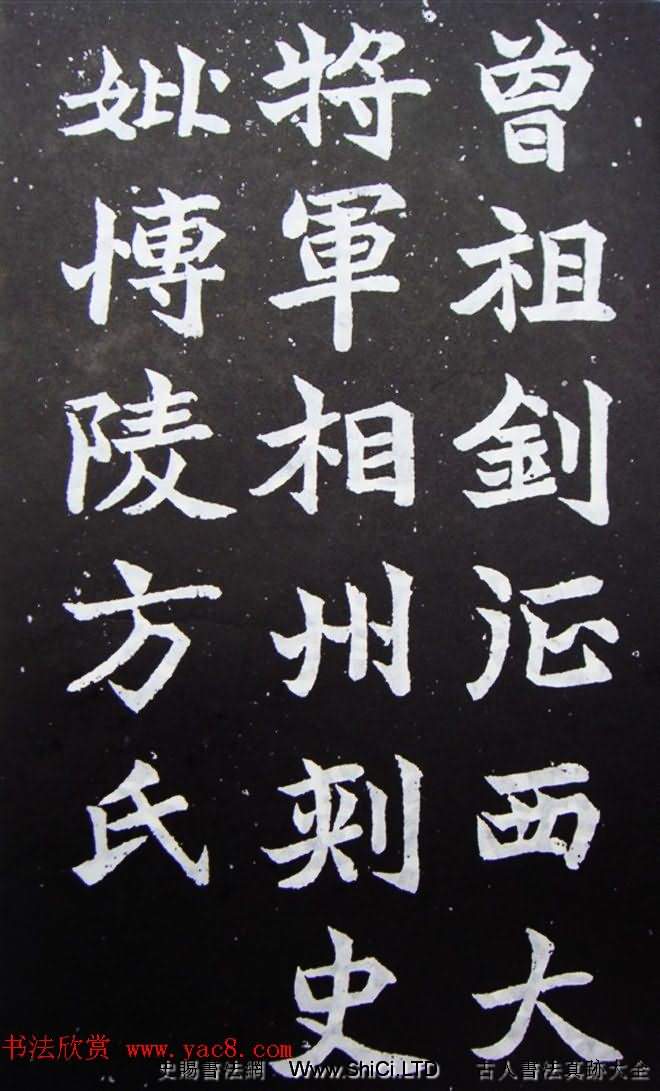 曾祖釗征西大
將軍相州刺史
妣博陵方氏
书法欣赏 www.yac8.com
史賜書法網 Www.ShiCi.LTD 古人書法真跡大全